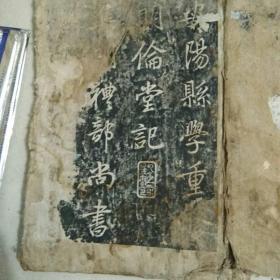 陽縣學重
明倫堂記
禮部尚書